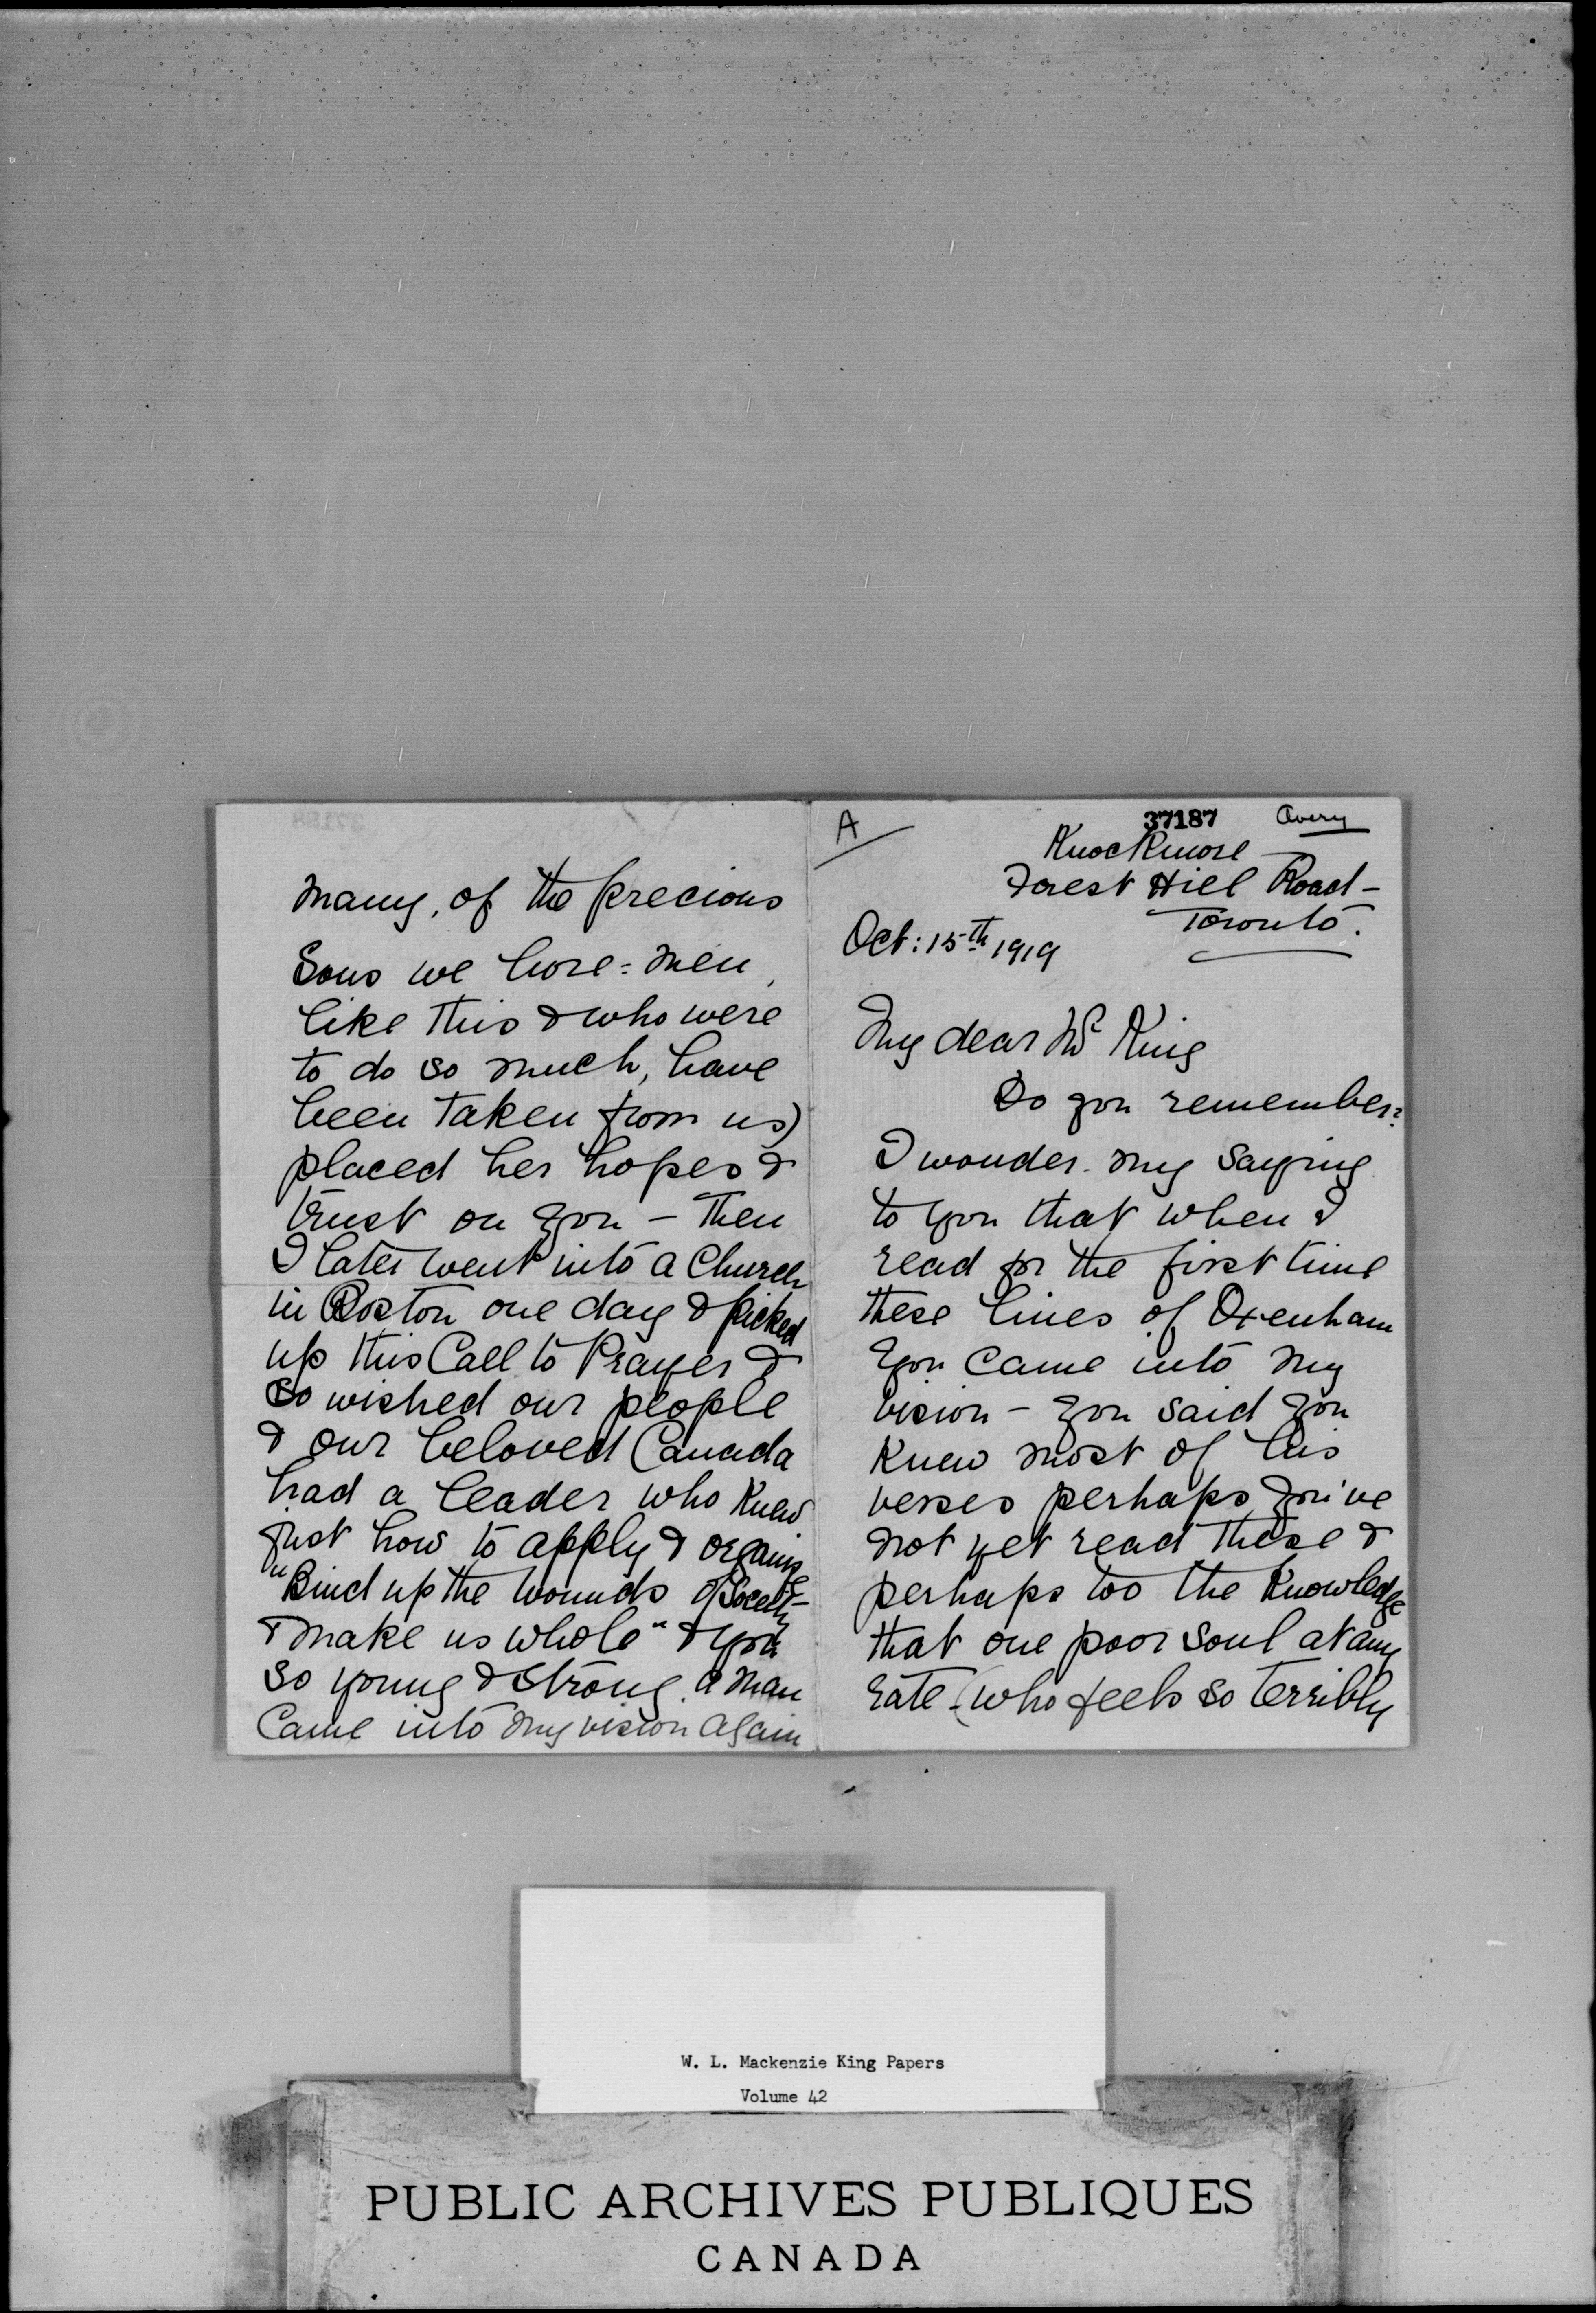 A
37187
Avery
Knockmore
Forest Hill Road -
Toronto.
Oct: 15th 1919
My dear Mr King
Do you remember?
I wonder. my saying
to you that when I
read for the first time
these lines of Oxenham
you came into my
vision - you said you
knew most of his
verses perhaps you've
not yet read these &
perhaps too the knowledge
that one poor soul at any
rate (who feels so terribly
many, of the precious
Sons we bore = men,
like this & who were
to do so much, have
been taken from us)
placed her hopes &
trust on you - Then
I later went into a Church
in Boston one day & picked
up this Call to Prayer &
so wished our people
& our beloved Canada
had a leader who knew
just how to apply & organise
"Bind up the wounds of Society
& make us whole" & you
so young & strong. a man
came into my vision again
W. L. Mackenzie King Papers
Volume 42
PUBLIC ARCHIVES PUBLIQUES
CANADA